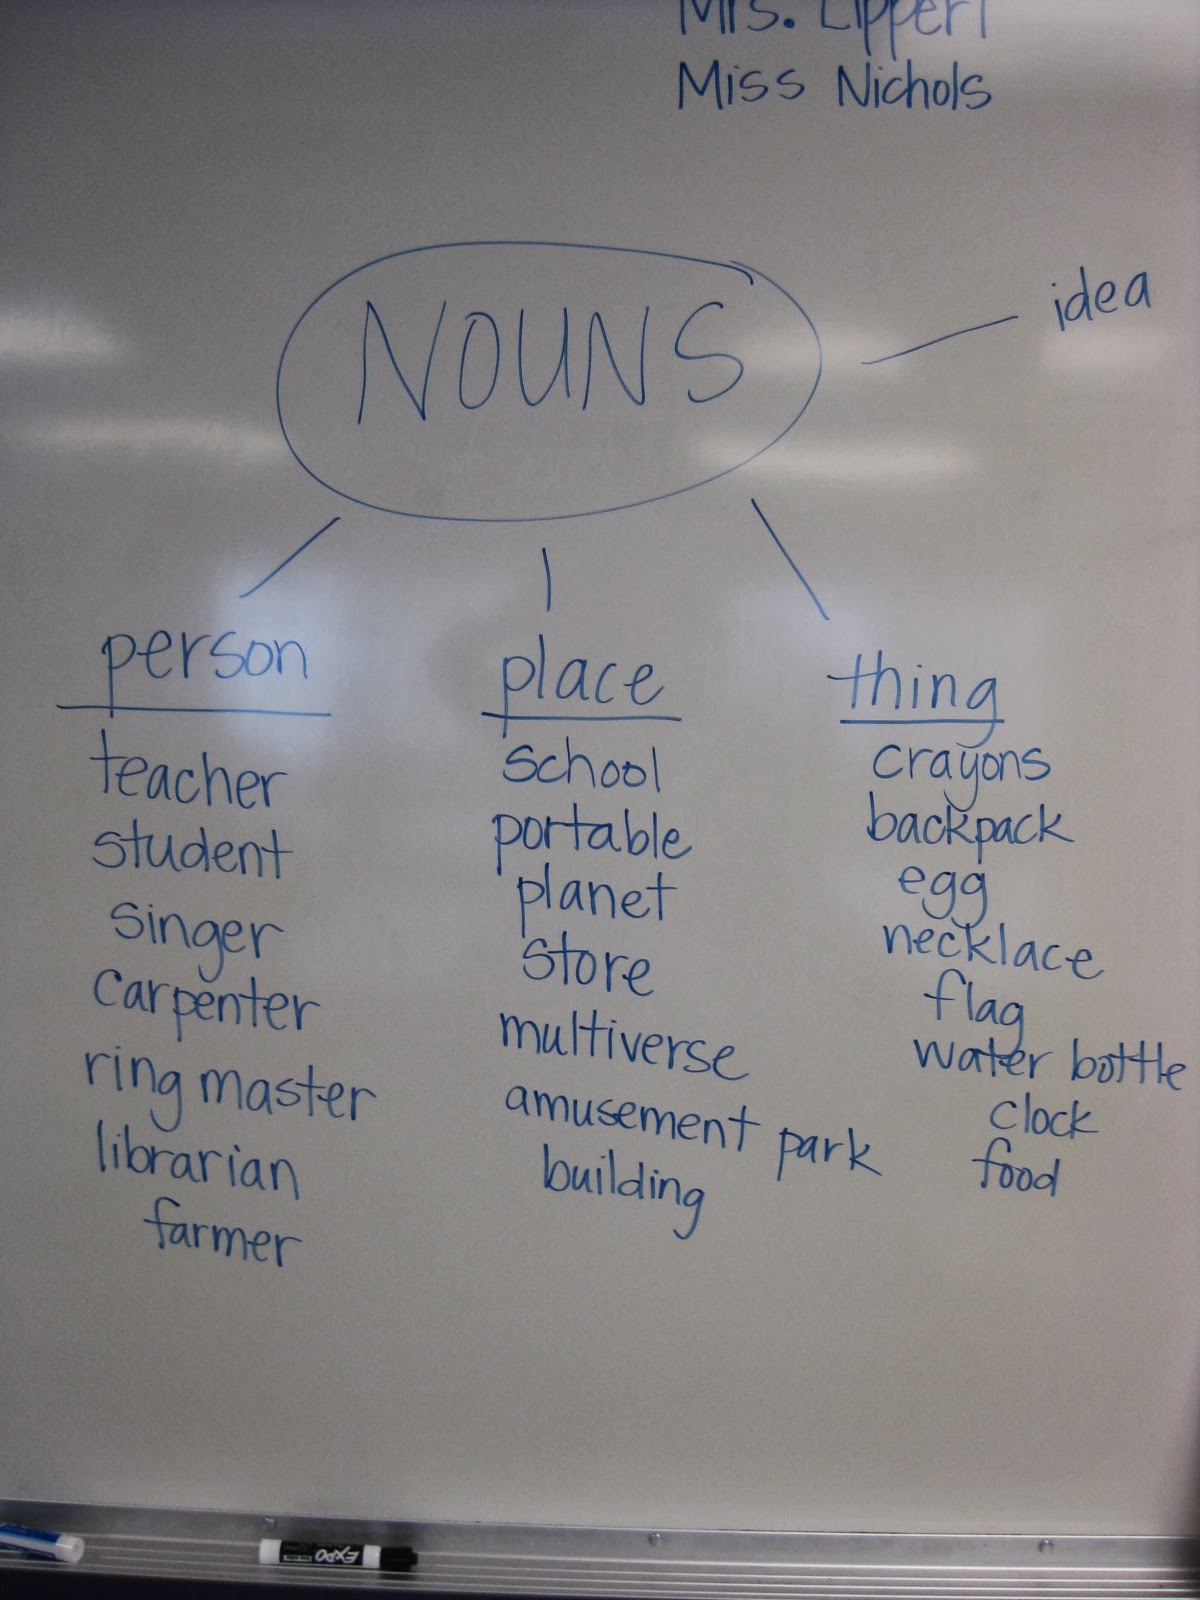 Mrs. Lippert
Miss Nichols
NOUNS
idea
person
teacher
student
singer
carpenter
ring master
librarian
farmer
place
school
portable
planet
store
multiverse
amusement park
building
thing
crayons
backpack
egg
necklace
flag
water bottle
clock
food
EXPO